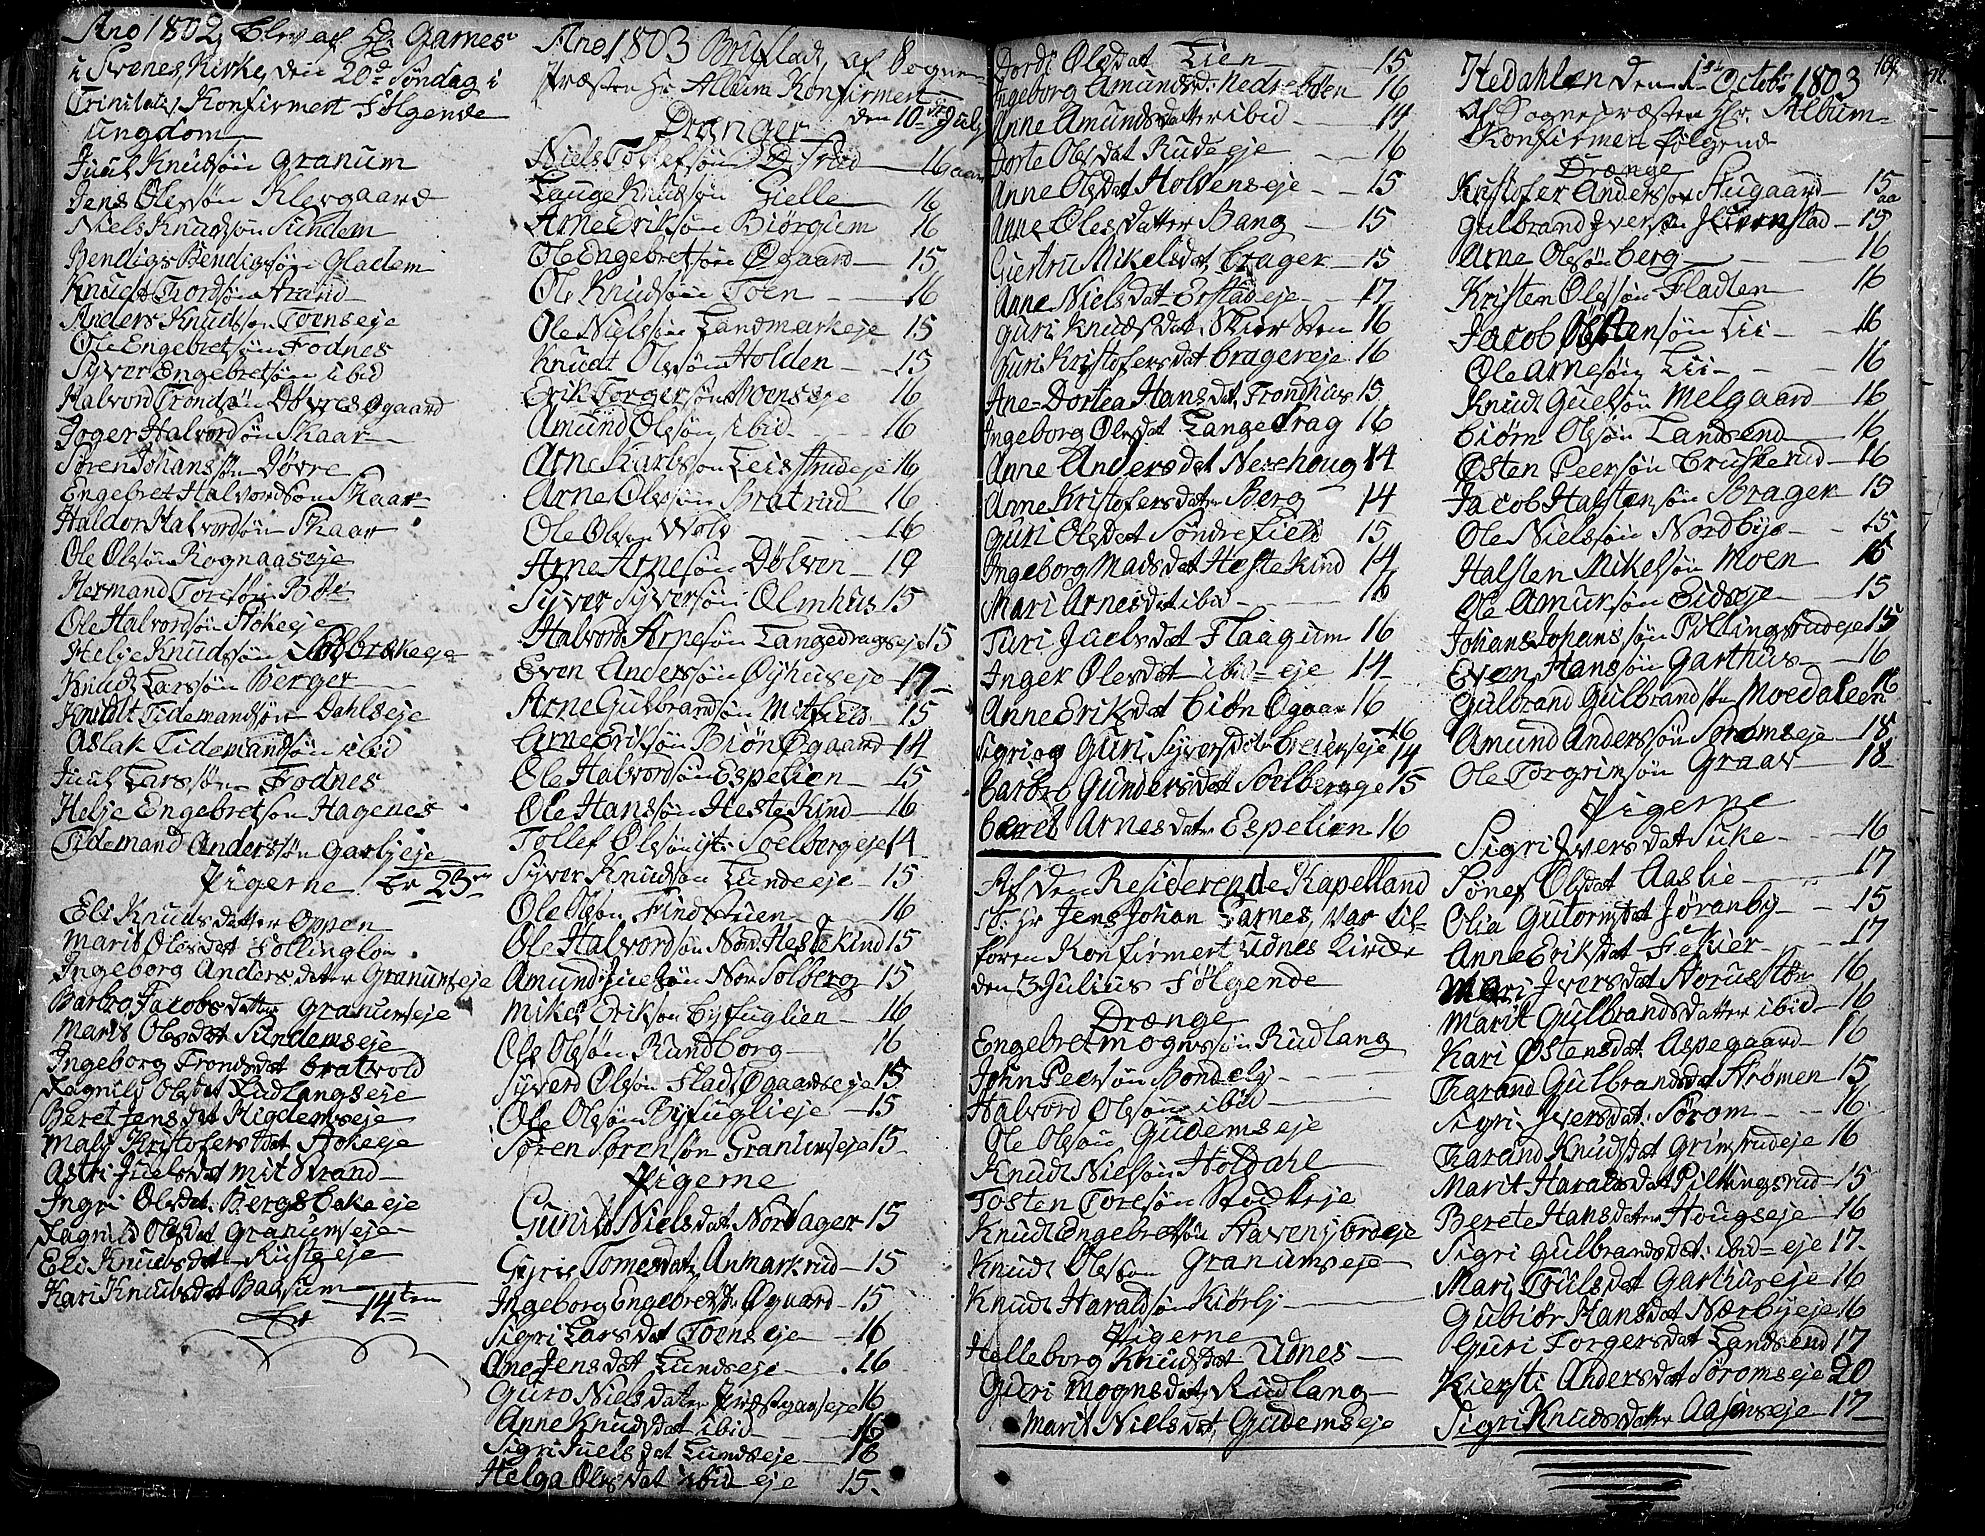 Ano 1802 Blev af Hr Garnes
i Svenes Kirke, den 20de Søndag i
Trinitatis Konfirmert Følgende
ungdom
Juul Knudsøn Granum
Jens Olessøn Klevgaard
Niels Knudsøn Sundem
Bendigs Bendigsøn Gladem
Knudt Tiordsøn Strand
Anders Knudsøn Toenseje
Ole Engebretsøn Fodnes
Syver Engebretsøn ibid
Halvord Trondsøn Døvres Øgaard
Joger Halvordsøn Skaar
Søren Johanssøn Døvre
Engebret Halvordsøn Skaar
Haldor Halvordsøn Skaar
Ole Olsøn Rognaaseje
Hermand Toresøn Bøe
Ole Halvordsøn Støkeje
Helje Knudsøn Solbrekeeje
Knudt Larssøn Berger
Knudt Tidemandsøn Dahlseje
Aslak Tidemandsøn ibid
Juul Larssøn Fodnes
Helje Engebretsøn Hagenes
Tidemand Anderssøn Garlieje
Pigerne Er 23
Eli Knudsdatter Oppen
Marit Olesdat Follinglo
Ingeborg Andersdatter Granumseje
Barbro Jacobsdatter Granumseje
Marit Olesdat Sundemseje
Ingeborg Trondsdat Bratvold
Ragnild Olsdat Rudlangseje
Beret Jensdat Migdemseje
Maly Kristofersdat Stokeeje
Astri Juelsdat Mitstrand
Ingri Olsdat Bergsbakeeje
Ragnild Olsdat Granumseje
Eli Knudsdat Rusteeje
Kari Knudsdat Bagsum
Er 14ten
Ano 1803 Bruflat, af Sogne-
Præsten Hr Album Konfirmert
den 10de July
Drænger
Niels Tollefsøn 16 aar
Lauge Knudsøn Gielle 16
Arne Eriksøn Biørgum 16
Ole Engebretsøn Øgaard 15
Ole Knudsøn Toen 16
Ole Nielsøn Landmarkeje 15
Knudt Olsøn Holden 15
Erik Torgersøn Moenseje 16
Amund Olsøn ibid 16
Arne Karlsøn Leirstrudeje 16
Arne Olsøn Bratrud 16
Ole Olsøn Wold 16
Arne Arnesøn Dølven 19
Syver Syversøn Olmhus 15
Halvord Arnesøn Langedragseje 15
Even Andersøn Øyhuseje 17
Arne Gulbrandsøn Mitfield 15
Arne Eriksøn Biørn Øgaard 14
Ole Halvordsøn Espelien 15
Ole Hanssøn Hestekind 16
Tollef Olsøn Soelbergeje 14
Syver Knudsøn Lundeeje 15
Ole Olsøn Findstuen 16
Ole Halvordsøn Nor Hestekind 15
Amund Juelsøn Nor Solberg 15
Mikel Eriksøn Byfuglien 16
Ole Olsøn Rundborg 16
Syverd Olsøn Flads Øgaardseje 15
Ole Olsøn Byfuglieje 15
Søren Sørensøn Granumseje 15
Pigerne
Gunild Nielsdat Nordager 15
Gyri Tomesdat Anmarkrud 15
Ingeborg Engebretsdr Øgaard 15
Sigri Larsdat Toenseje 16
Ane Jensdat Lundseje 16
Guro Nielsdatr Præstgaardseje 16
Anne Knudsdat ibid 16
Sigri Juelsdat Lundseje 16
Helga Olesdat ibid eje 15
Dordi Olesdat Lien 15
Ingeborg Amundsd: Nedrebøen 16
Anne Amundsdatter ibid 14
Dorte Olesdat Rudeeje 16
Anne Olsdat Holdenseje 15
Anne Olesdatter Bang 15
Giertru Mikelsdat Brager 15
Anne Nielsdat Erstadeje 17
Guri Knudsdat Skiersten 16
Guri Kristofersdat Bragereje 16
Ane Dortea Hansdat Trondhus 15
Ingeborg Olesdat Langedrag 16
Anne Andersdat Nerehoug 14
Anne Kristofersdatr Berg 14
Guri Olsdat Søndrefield 15
Ingeborg Madsdat Hestekind 14
Mari Arnesdat ibid 16
Turi Juelsdat Flaagum 16
Inger Olesdat ibid eje 14
Anne Eriksdat Biøn Øgaar 16
Sigri og Guri Syversdatr Beierseje 16 14
Barbro Gundersdat Soelbergeje 15
Beret Arnesdatr Espelien 16
Af den Residerende Kapelland
St: Hr Jens Johan Garnes, var til-
foren Konfirmert Udnes Kirke
den 3 Julius Følgende
Drænge
Engebret Mognssøn Rudlang
John Peersøn Bondely
Halvord Olsøn ibid
Ole Olsøn Gudemseje
Knudt Nielsøn Holdahl
Tosten Toresøn Stodkeje
Knudt Engebretsøn Havensbordeje
Knudt Olsøn Granumseje
Knudt Haraldsøn Kiørly
Pigerne
Helleborg Knudsdat Udnes
Guri Mognsdat Rudlang
Marit Nielsdat Gudemseje
Hedahlen den 1ste Octobr 1803
Af Sognepræsten Hr. Album
Konfirmert følgende
Drænge
Kristofer Andersøn Stugaard 15 aa
Gulbrand Iversøn Skiernstad 15
Arne Olsøn Berg 16
Kristen Olsøn Fladten 16
Jacob Østensøn Lii 16
Ole Arnesøn Lii 16
Knudt Guelsøn Melgaard 16
Biørn Olsøn Landsend 16
Østen Peersøn Bruskerud 16
Jacob Halstensøn Brager 15
Ole Nielsøn Nordbye 15
Halsten Mikelsøn Moen 15
Ole Amunsøn Eidseje 15
Johans Johansøn Pillingsrudeje 15
Even Hansøn Garthus 16
Gulbrand Gulbrandsøn Moedalen 16
Amund Anderssøn Søromseje 18
Ole Torgrimsøn Graav 18
Pigerne
Sigri Iversdat Suke 16
Sønef Olsdat Aaslie 17
Olia Gutormsdat Jøranby 15
Anne Eriksdat Fekier 17
Mari Iversdat Storustøn 16
Marit Gulbrandsdatter ibid 16
Kari Østensdat Aspegaard 16
Tarand Gulbrandsdat Strømen 15
Sigri Iversdat Sørom 16
Tarand Knudsdat Grimsrudeje 16
Marit Haraldsdat Pillingsrud 15
Berete Hansdatter Hougseje 16
Sigri Gulbrandsdat ibid eje 17
Mari Trulsdat Garthuseje 16
Gubiør Hansdat Nærbyeje 16
Guri Torgersdat Landsend 17
Kiersti Andersdat Søromseje 20
Sigri Knudsdatter Aasenseje 17